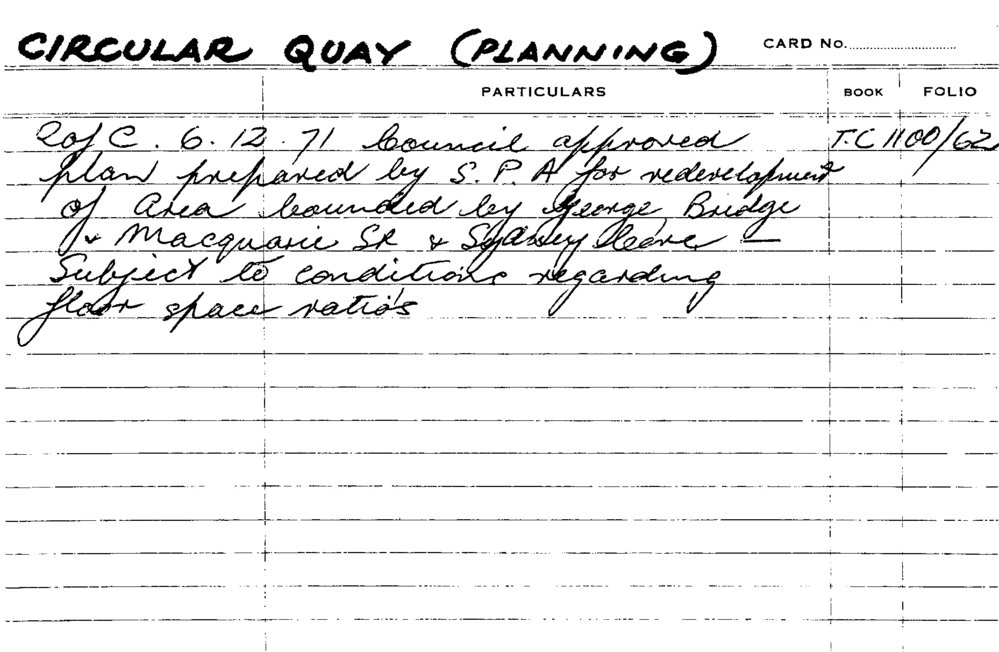 CIRCULAR QUAY (PLANNING) CARD No.
PARTICULARS BOOK FOLIO
R of C. 6.12.71 Council approved T.C 1100/62
plan prepared by S.P.A for redevelopment
of Area bounded by George, Bridge
& Macquarie St & Sydney Cove —
Subject to conditions regarding
floor space ratio's